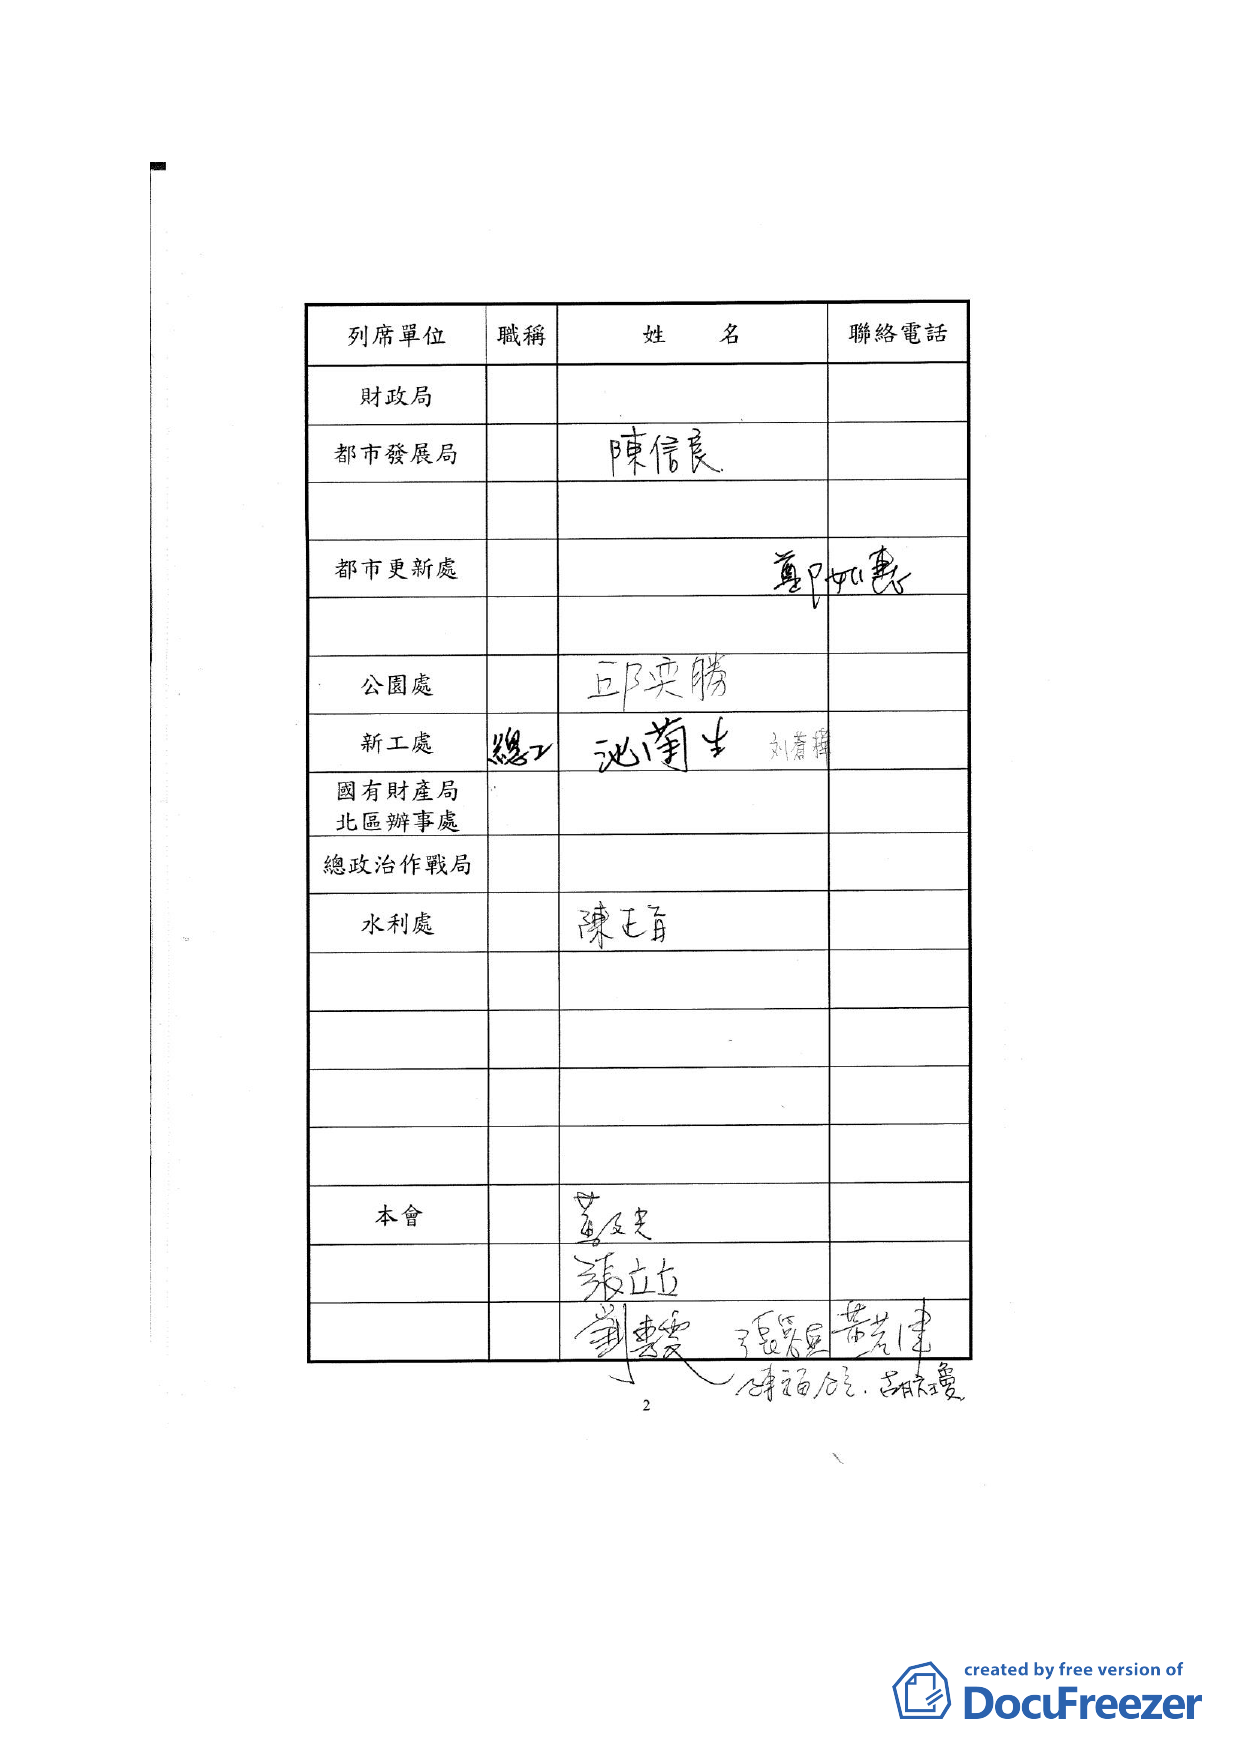 列席單位 職稱 姓 名 聯絡電話
財政局
都市發展局 陳信良
都市更新處 鄭如惠
公園處 邱奕勝
新工處 總工 池蘭生
國有財產局
北區辦事處
總政治作戰局
水利處
本會
張立立
劉惠雯
2
created by free version of
DocuFreezer